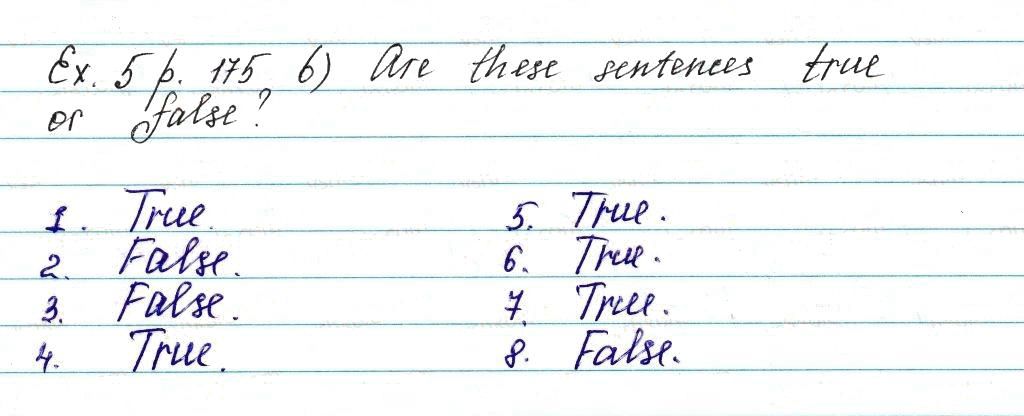 Ex. 5 p. 175 б) Are these sentences true
or false?
1. True.
2. False.
3. False.
4. True.
5. True.
6. True.
7. True.
8. False.